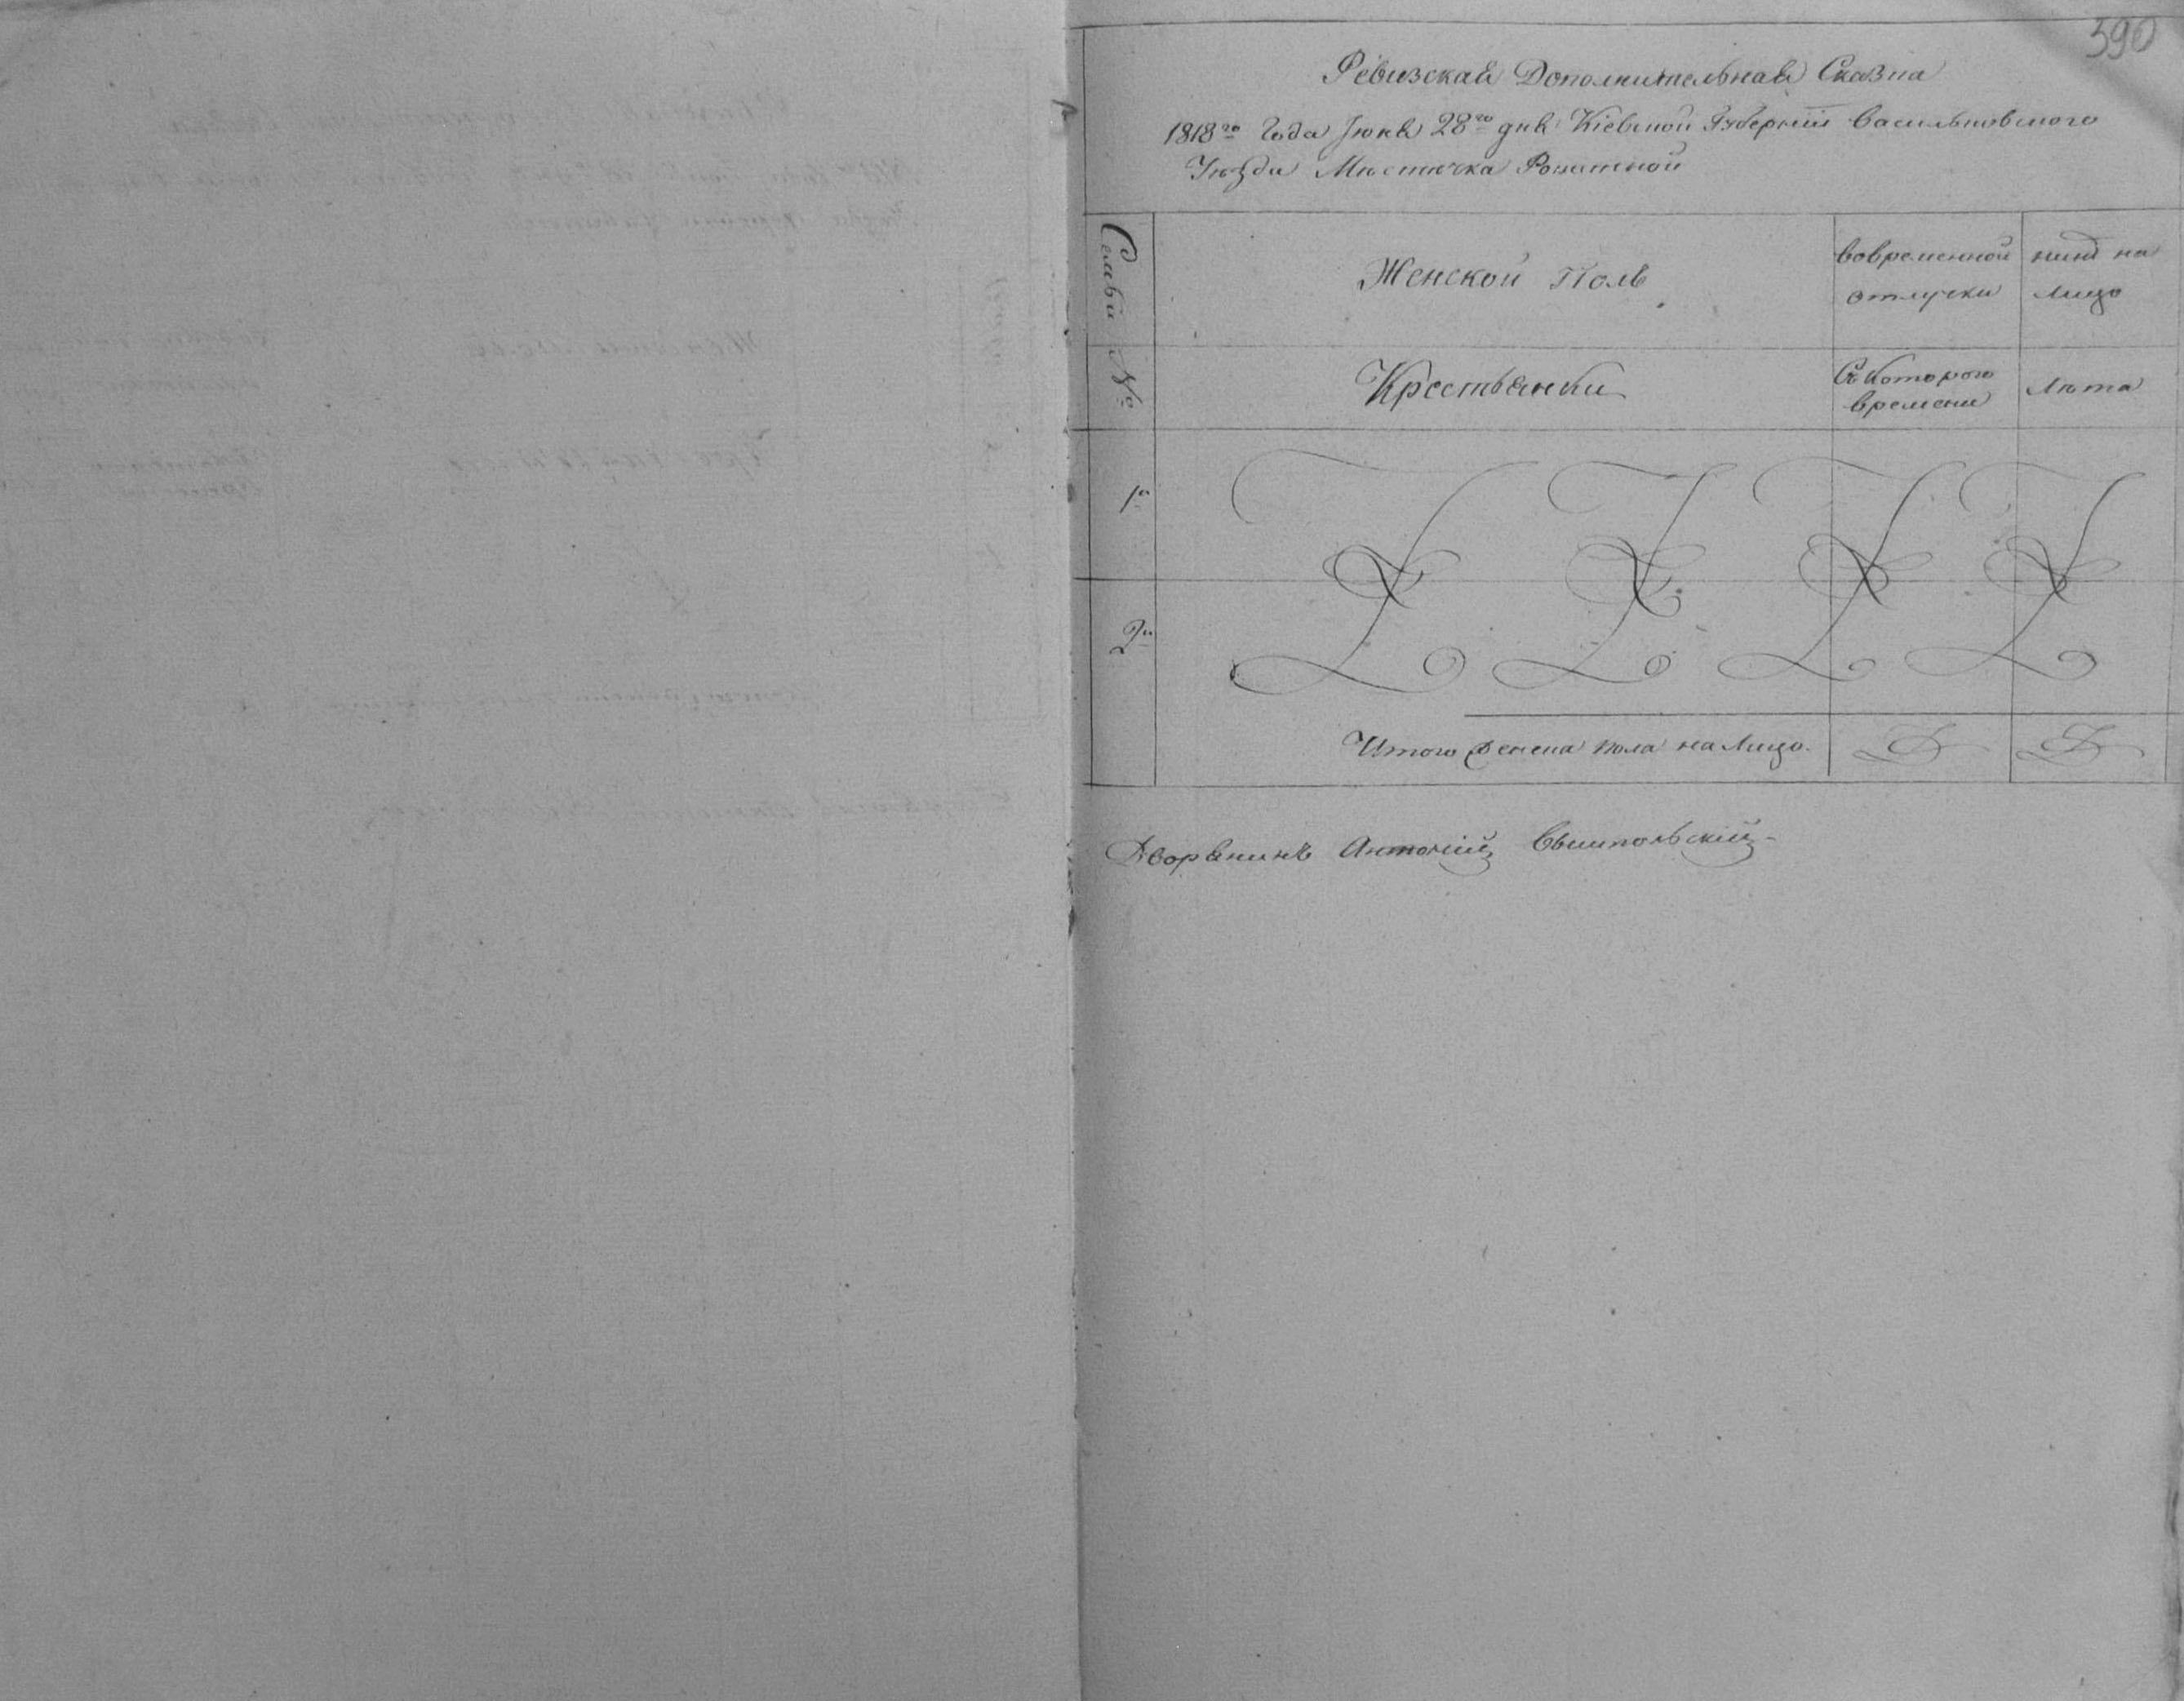 590
Ревизская Дополнительная Сказка
1818го Года Июня 28го дня Кіевской Губерніи Васильковского
Уѣзда Мѣстечка Рокитной
Семьи №
Женской Полъ
вовременной отлучки
нынѣ на лицо
Крестьянки
Съ которого времени
Лѣта
1я
2я
Итого Женска пола на лицо
Дворянинъ Антоній